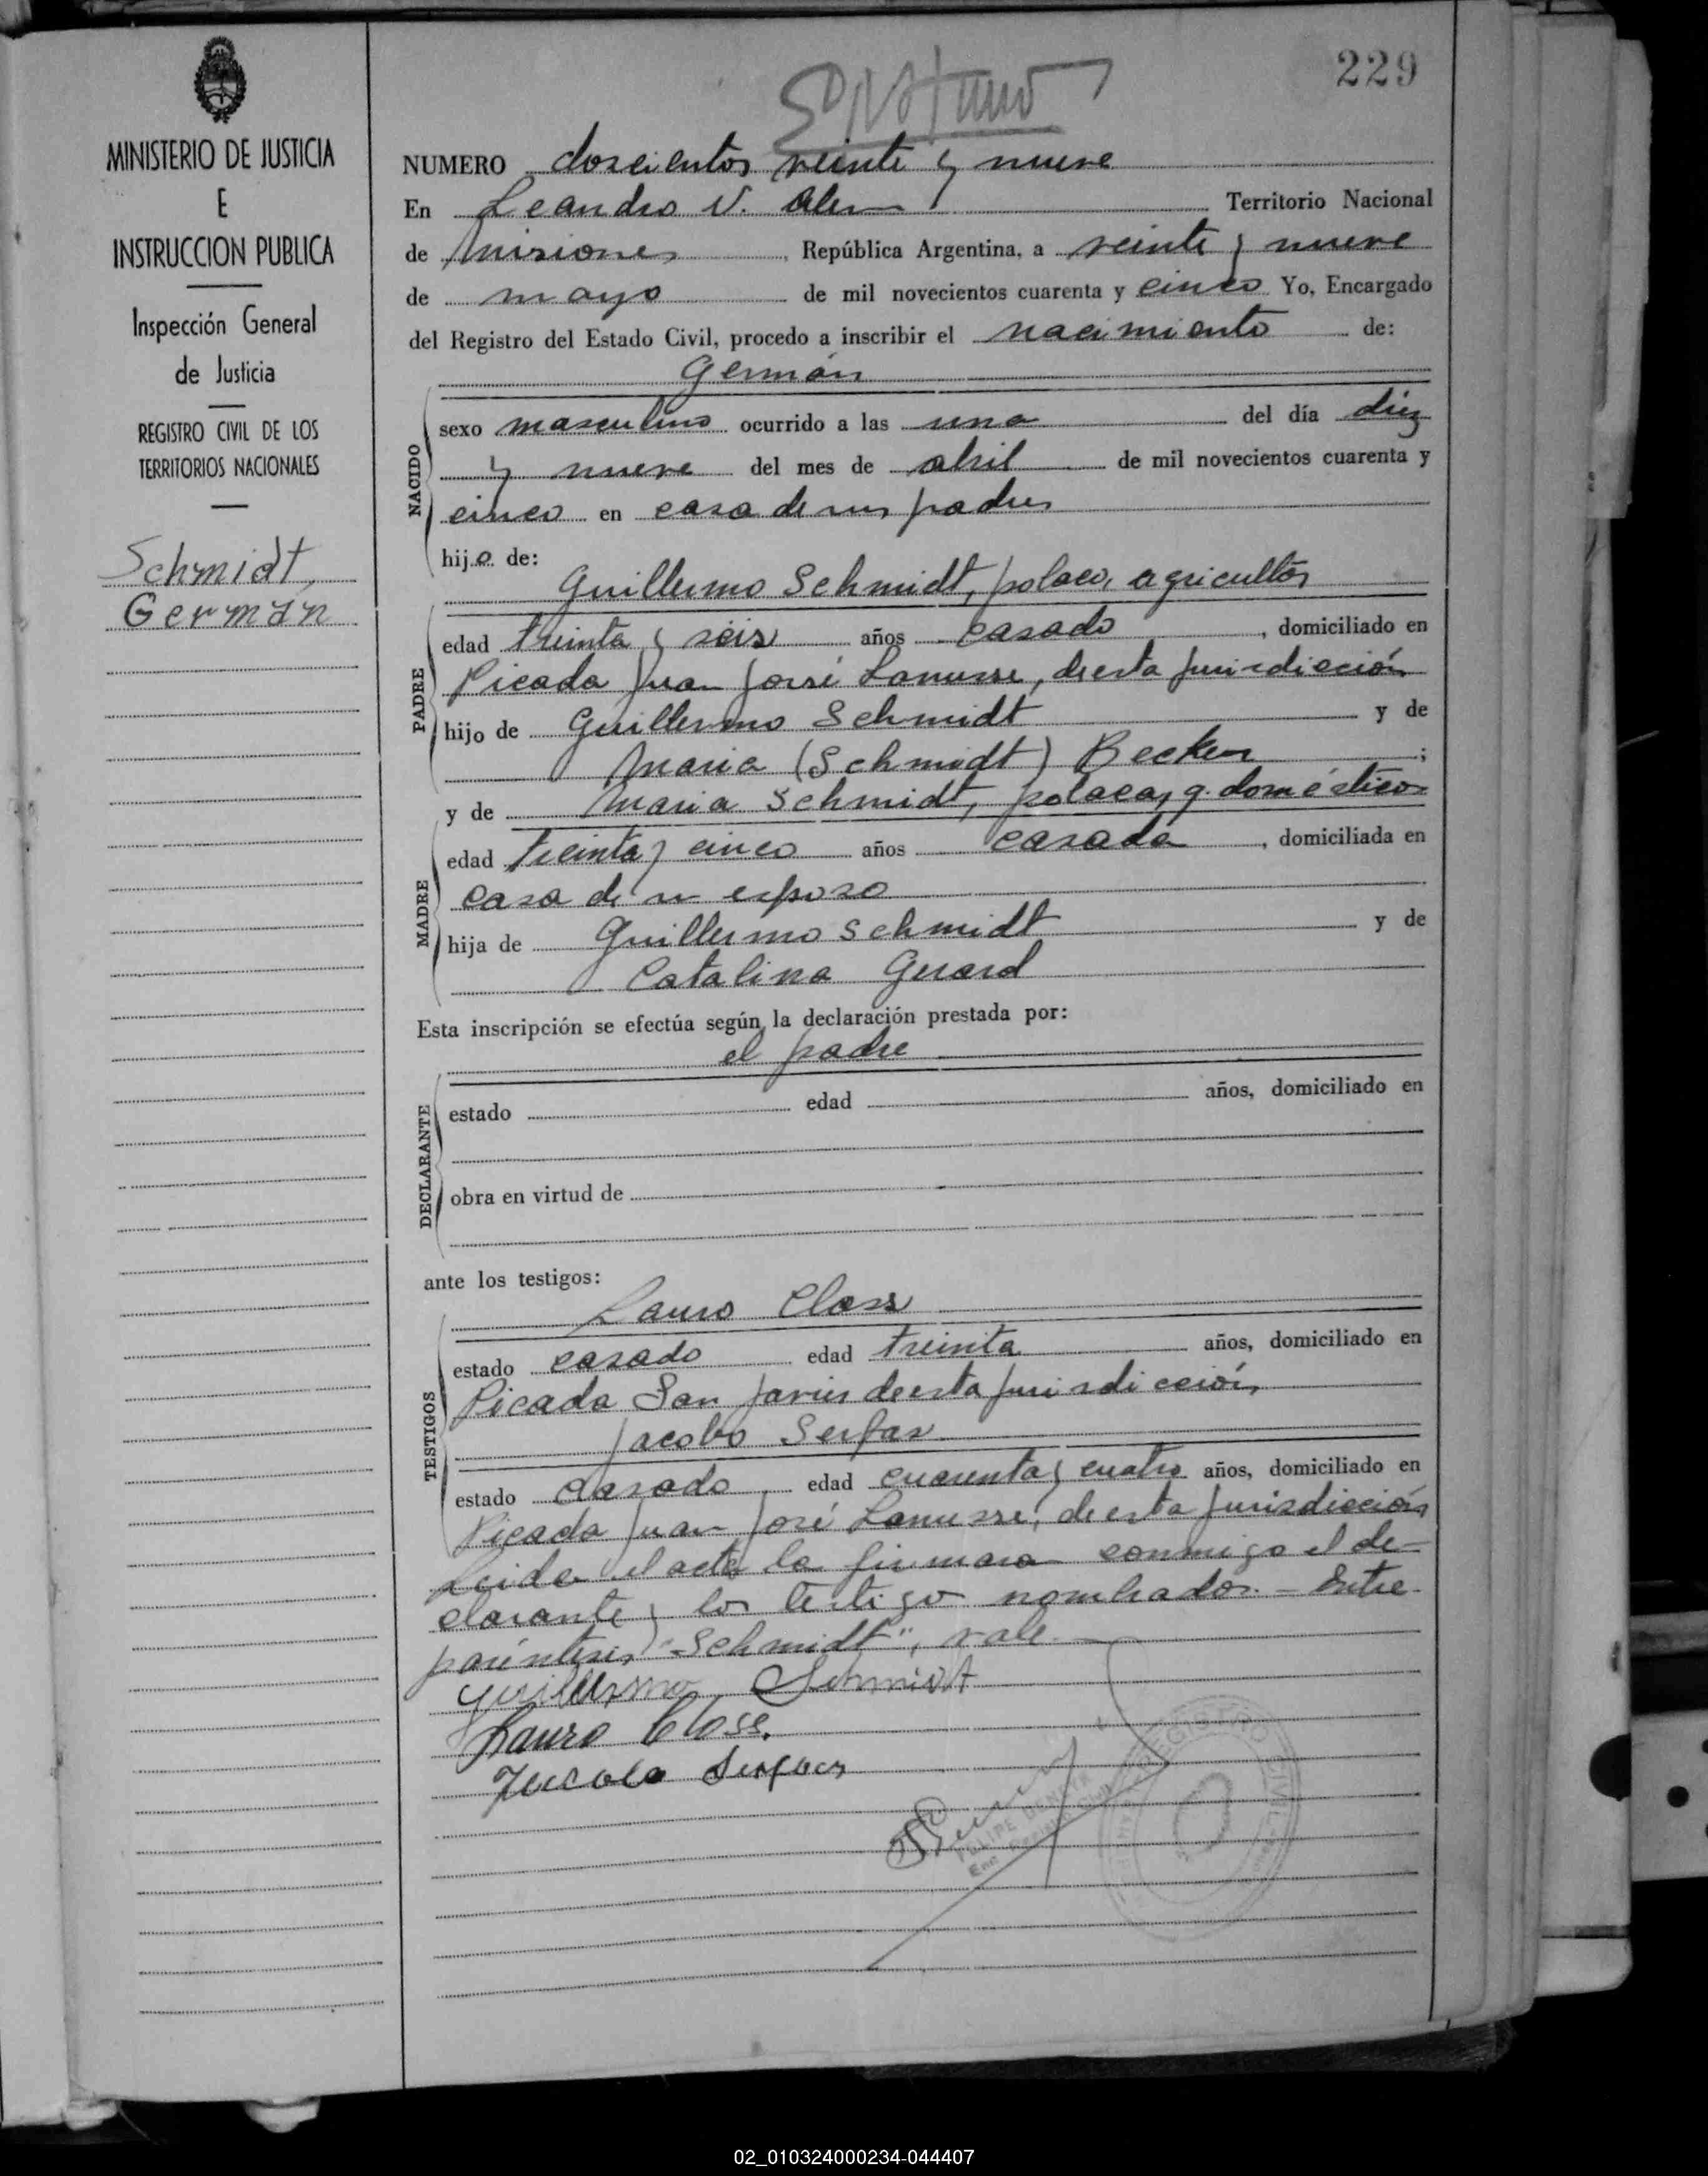 229
MINISTERIO DE JUSTICIA
E
INSTRUCCION PUBLICA
Inspección General
de Justicia
REGISTRO CIVIL DE LOS
TERRITORIOS NACIONALES
Schmidt,
Germán
NUMERO doscientos veinte y nueve
En Leandro N. Alem Territorio Nacional
de Misiones, República Argentina, a veinte y nueve
de mayo de mil novecientos cuarenta y cinco Yo, Encargado
del Registro del Estado Civil, procedo a inscribir el nacimiento de:
Germán
NACIDO
sexo masculino ocurrido a las una del día diez
y nueve del mes de abril de mil novecientos cuarenta y
cinco en casa de sus padres
hijo de:
Guillermo Schmidt, polaco, agricultor
PADRE
edad treinta y seis años casado, domiciliado en
Picada Juan José Lanusse, de esta jurisdicción
hijo de Guillermo Schmidt y de
Maria (Schmidt) Becker;
y de Maria Schmidt, polaca, q. domésticos
MADRE
edad treinta y cinco años casada, domiciliada en
casa de su esposo
hija de Guillermo Schmidt y de
Catalina Gerard
Esta inscripción se efectúa según la declaración prestada por:
el padre
DECLARANTE
estado edad años, domiciliado en
obra en virtud de
ante los testigos:
Lauro Closs
TESTIGOS
estado casado edad treinta años, domiciliado en
Picada San Javier de esta jurisdicción,
Jacobo Serfas
estado casado edad cuarenta y cuatro años, domiciliado en
Picada Juan José Lanusse, de esta jurisdicción
Leida el acta la firmaron conmigo el de-
clarante y los testigos nombrados. - Entre
paréntesis "Schmidt", vale.
Guillermo Schmidt
Lauro Closs.
Jacobo Serfas
REGISTRO CIVIL
02_010324000234-044407